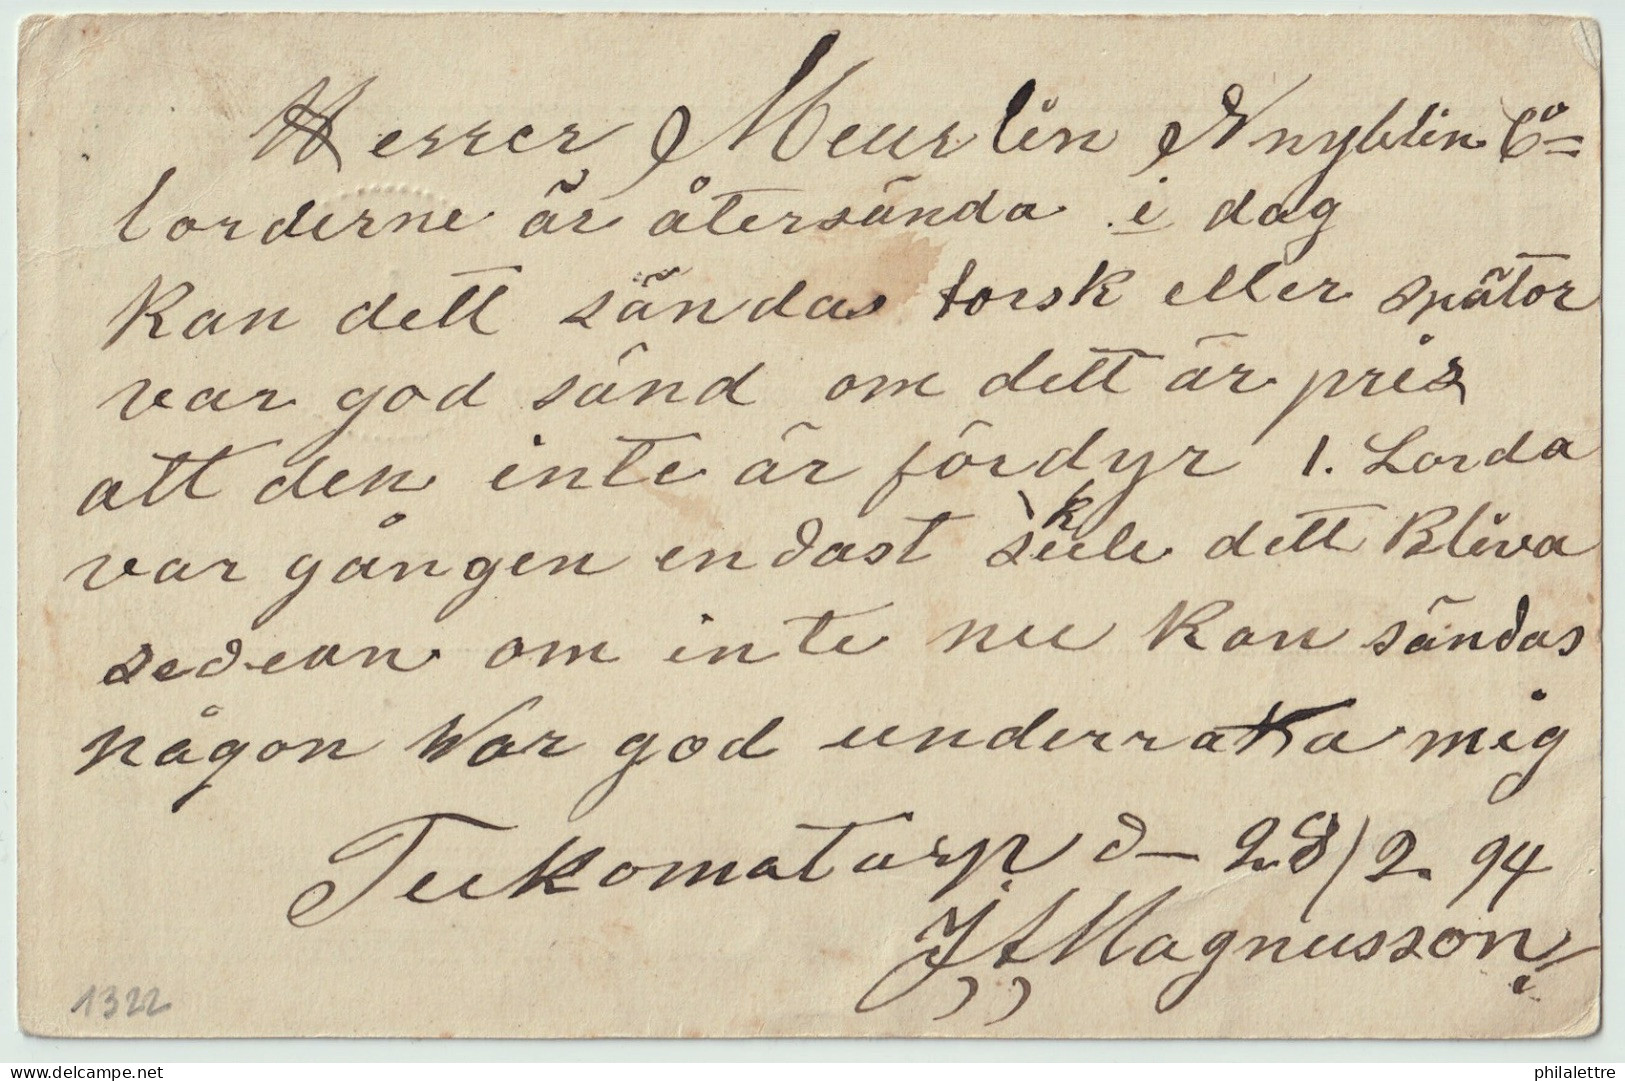 Herrer Meurlin Nnyblin Co=
lorderne är återsända i dag
Kan dett sändas torsk eller spätor
var god sänd om dett är pris
att den inte är fördyr 1. Lorda
var gången endast skule dett Bliva
sedean om inte nu Kan sändas
någon War god underrätta mig
Tukomatorp d– 28/2. 94
J A Magnusson
1322
delcampe.net
philalettre